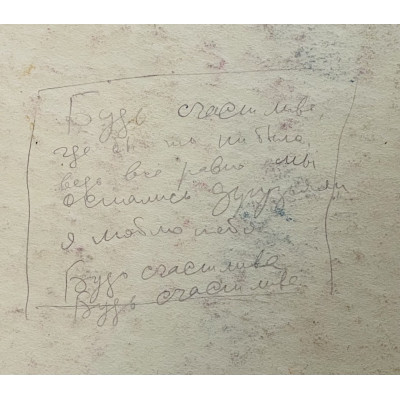 Будь счастлива
где бы ты ни была,
ведь все равно мы
остались друзьями
я люблю тебя
Будь счастлива
Будь счастлива